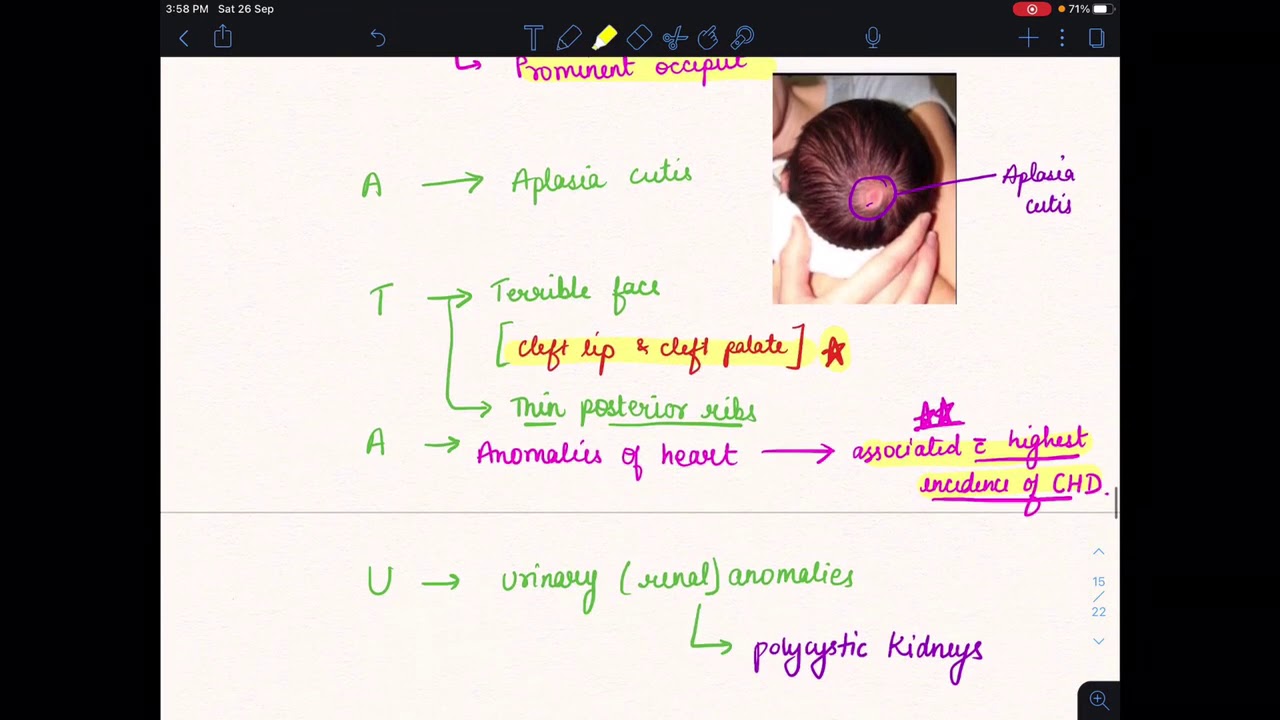 3:58 PM Sat 26 Sep
71%
Prominent occiput
A → Aplasia cutis
Aplasia
cutis
T → Terrible face
[cleft lip & cleft palate]
Thin posterior ribs
A → Anomalies of heart → associated c̄ highest
encidence of CHD.
U → urinary (renal) anomalies
polycystic kidneys
15
/
22